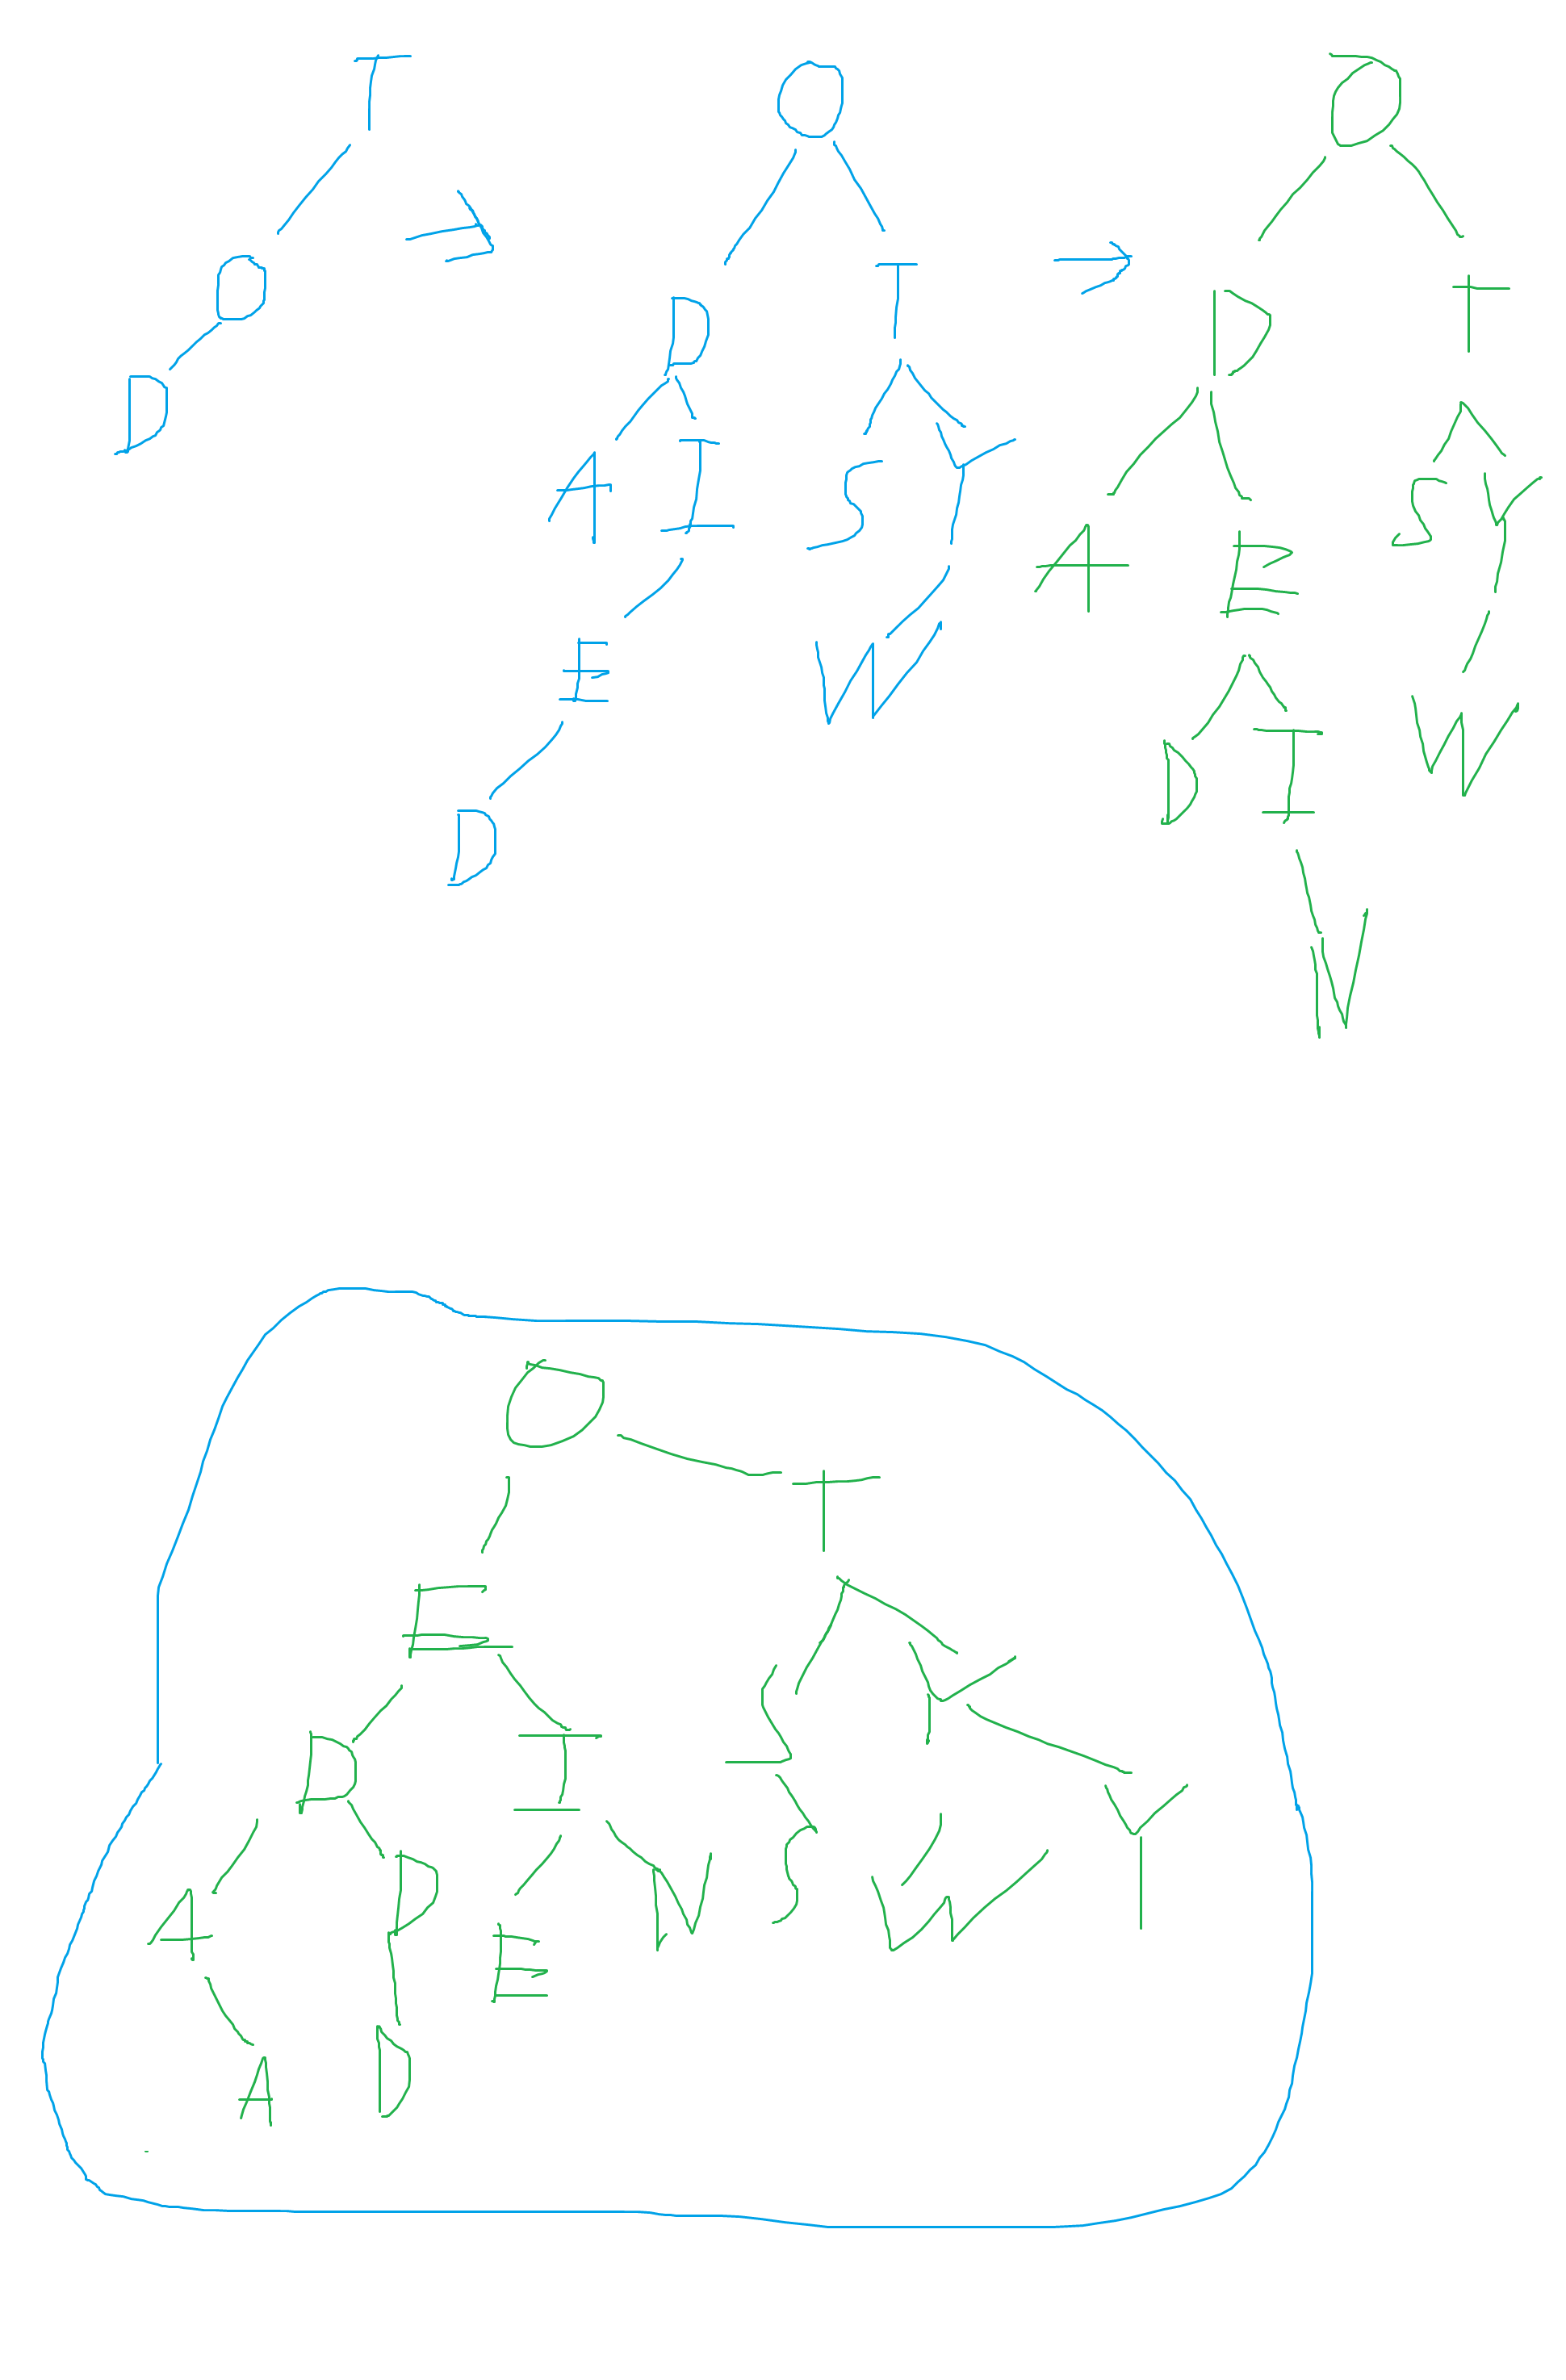 T
O
D
O
D T
A I S Y
E W
D
O
D T
A E S Y
D I W
N
O
T
E
D I S Y
A D E N S W Y
A D